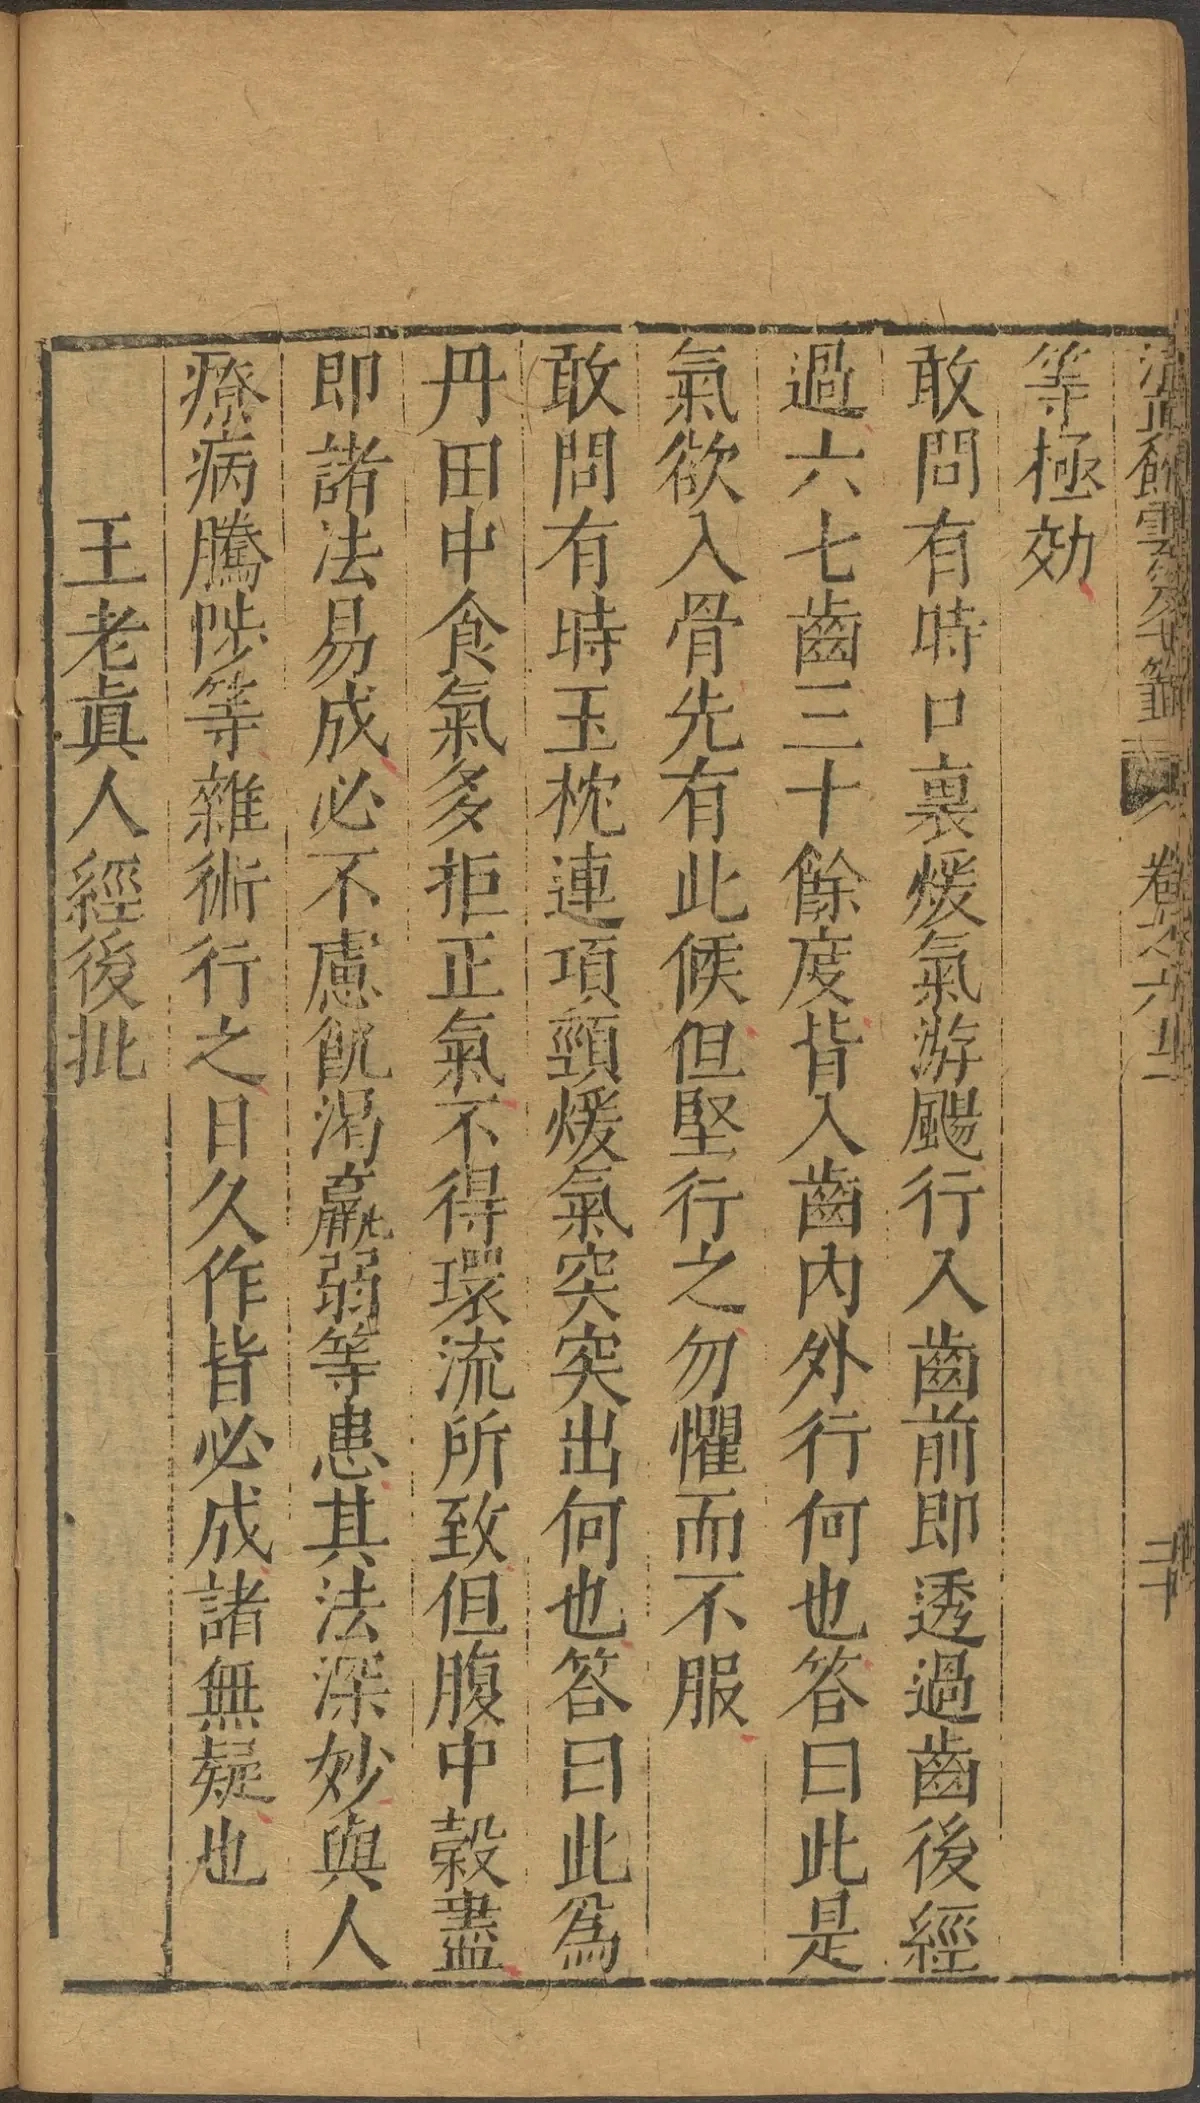 清真館雲笈七籤 卷之六十 二十
等極効
敢問有時口裏煖氣游颺行入齒前即透過齒後經
過六七齒三十餘度皆入齒內外行何也答曰此是
氣欲入骨先有此候但堅行之勿懼而不服
敢問有時玉枕連項頸煖氣突突出何也答曰此為
丹田中食氣多拒正氣不得環流所致但腹中榖盡
即諸法易成必不慮飢渴羸弱等患其法深妙與人
療病騰陟等雜術行之日久作皆必成諸無疑也
王老眞人經後批